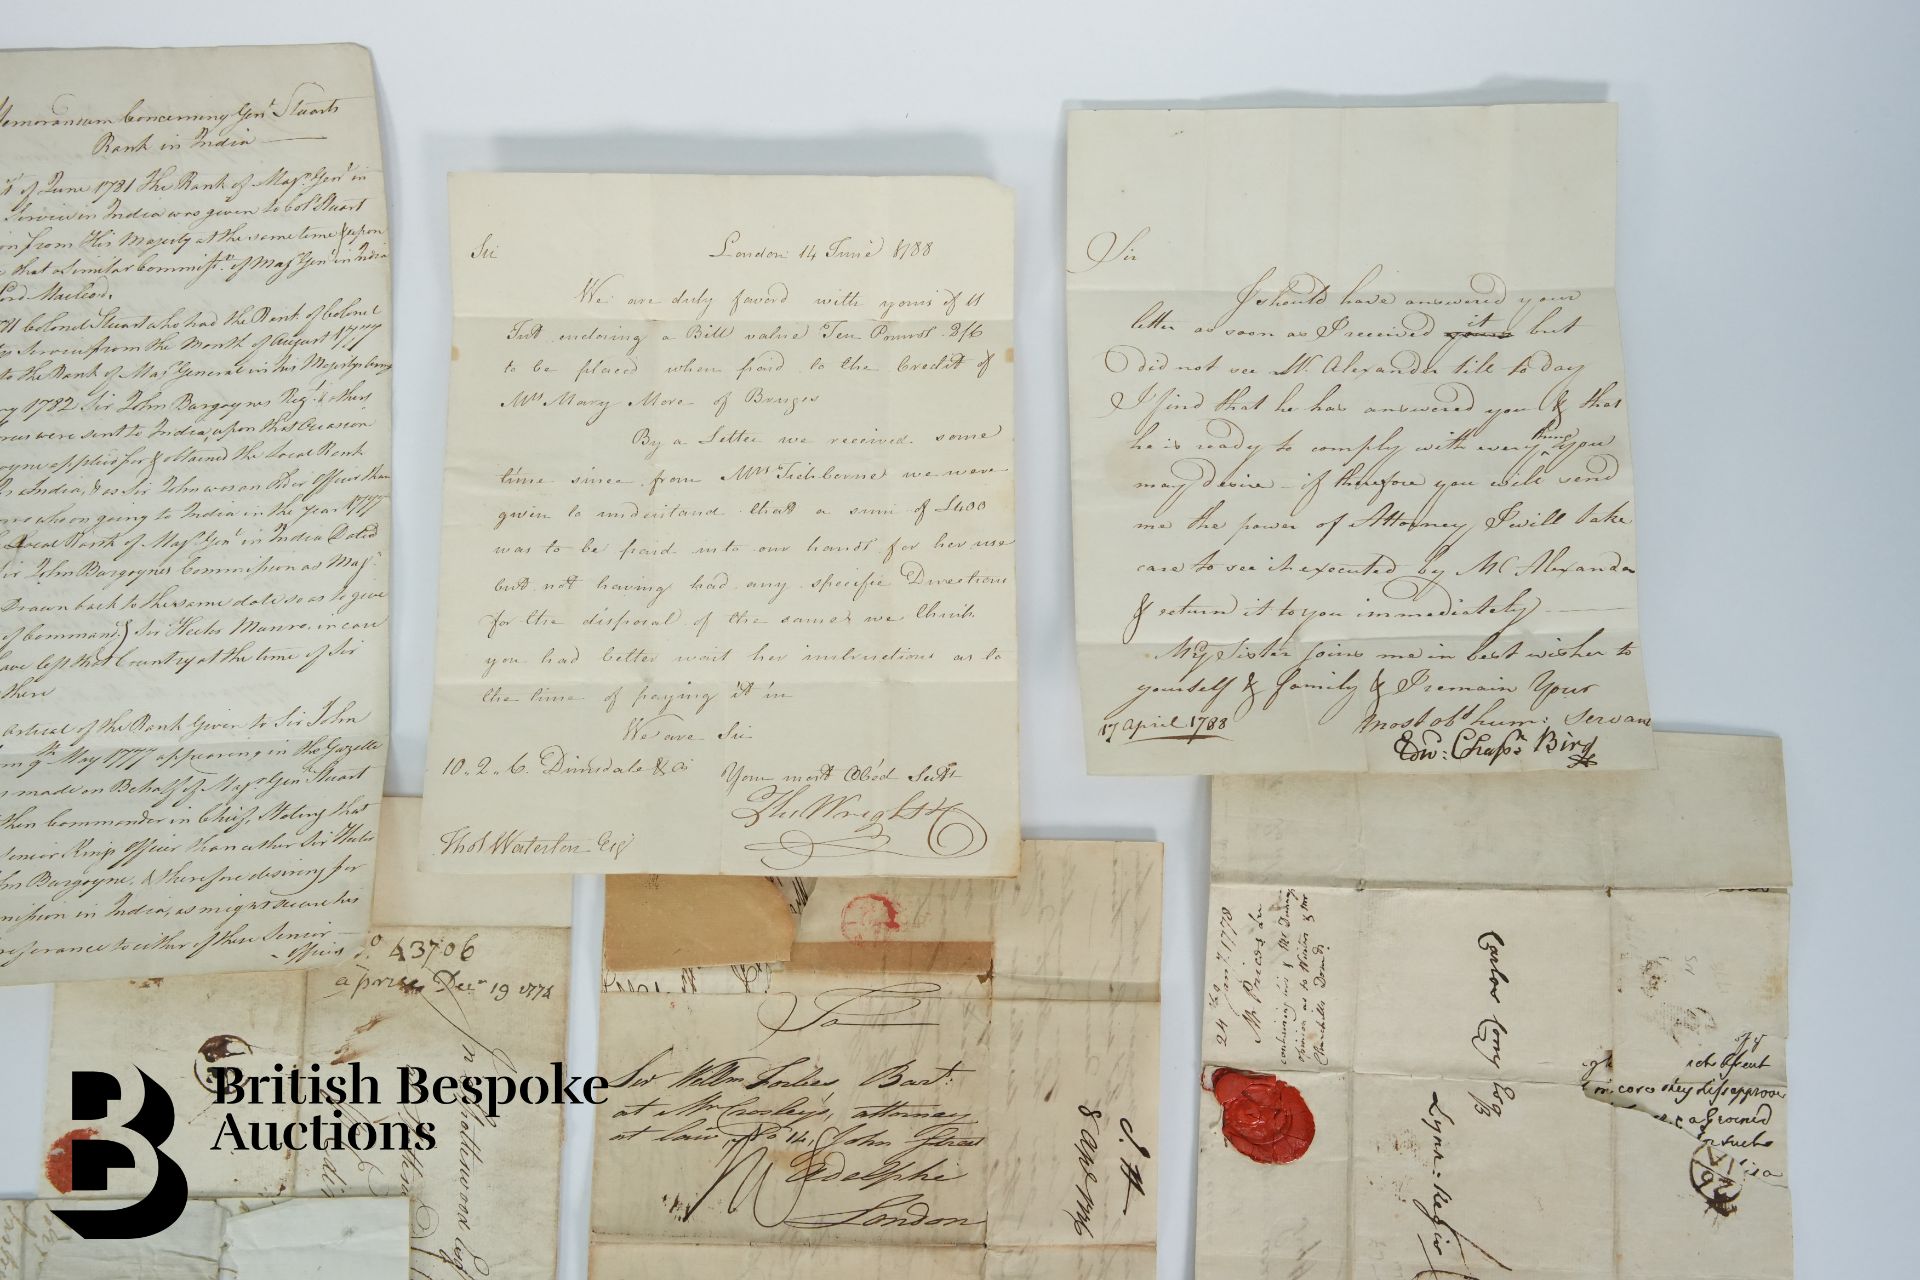 Memorandum Concerning Genl. Stuarts
Rank in India
of June 1781 The Rank of Majr. Genl. in
Service in India was given to Coll. Stuart
from His Majesty at the same time & upon
that a similar Commissn. of Majr. Genl. in India
Lord Macleod.
Colonel Stuart who had the Rank of Colonel
Service from the Month of August 1777
to the Rank of Majr. General in his Majestys
1782 Sir John Burgoynes Regt. & others
were sent to India, upon that Occasion
applied for & obtained the Local Rank
India, & as Sir John was an Older Officer than
who on going to India in the Year 1777
Local Rank of Majr. Genl. in India Dated
Sir John Burgoynes Commission as Majr.
Drawn back to the same date so as to give
of Command) Sir Hector Munro, in case
have left that Country at the time of Sir
there
of the Rank Given to Sir John
May 1777 appearing in the Gazette
made on Behalf of Majr. Genl. Stuart
then Commander in Chief, Stating that
Senior Kings Officer than either Sir Hector
Burgoyne, & therefore desiring for
in India, as might secure his
referance to either of these Senior
Officers
Sir
London 14 June 1788
We are duly favord with yours of 11
Inst enclosing a Bill value Ten Pounds 2/6
to be placed when paid to the Credit of
Mrs Mary More of Bruges
By a Letter we received some
time since from Mrs Tichborne we were
given to understand that a sum of £400
was to be paid into our hands for her use
but not having had any specific Directions
for the disposal of the same we think
you had better wait her instructions as to
the time of paying it in
We are Sir
10..2..6. Dimsdale & Co
Your most Obed Servt
Tho Wright
Thos Waterton Esq
Sir
I should have answered your
letter as soon as I received it but
did not see Mr. Alexander till to day
I find that he has answered you & that
he is ready to comply with every thing you
may desire - if therefore you will send
me the power of Attorney, I will take
care to see it executed by Mr Alexander
& return it to you immediately
My Sister joins me in best wishes to
yourself & family & I remain Your
17 April 1788
most obt. hum: Servant
Edw: Bird
No. 43706
a prize Decr 19 1774
To
Sir Willm Forbes Bart.
at Mr Crosley's, attorney
at law, No 14, John Street
Adelphi
London
8 Apr 1776
24 Jany. 1778
Mr Prices
containing his & Mr
opinion as to Winter & Mr
Churchills Demd.
Carlos Cony Esq
Lynn-Regis
they disapprove
British Bespoke
Auctions